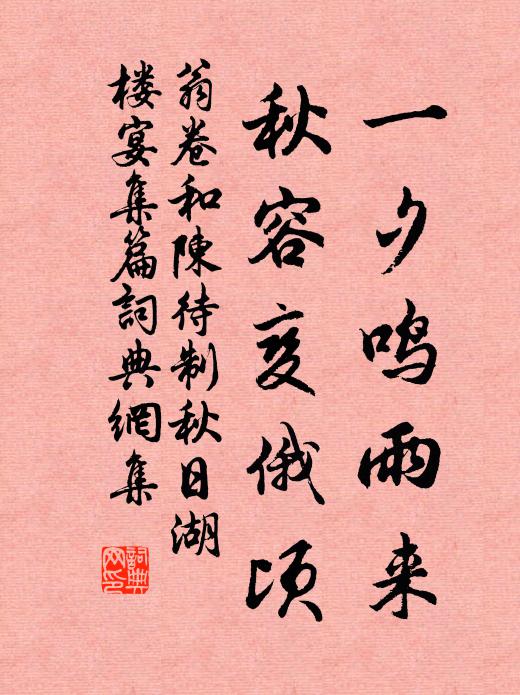 一夕鸣雨来
秋容变俄顷
翁卷和陳待制秋日湖
楼宴集篇詞典網集
詞典
网印